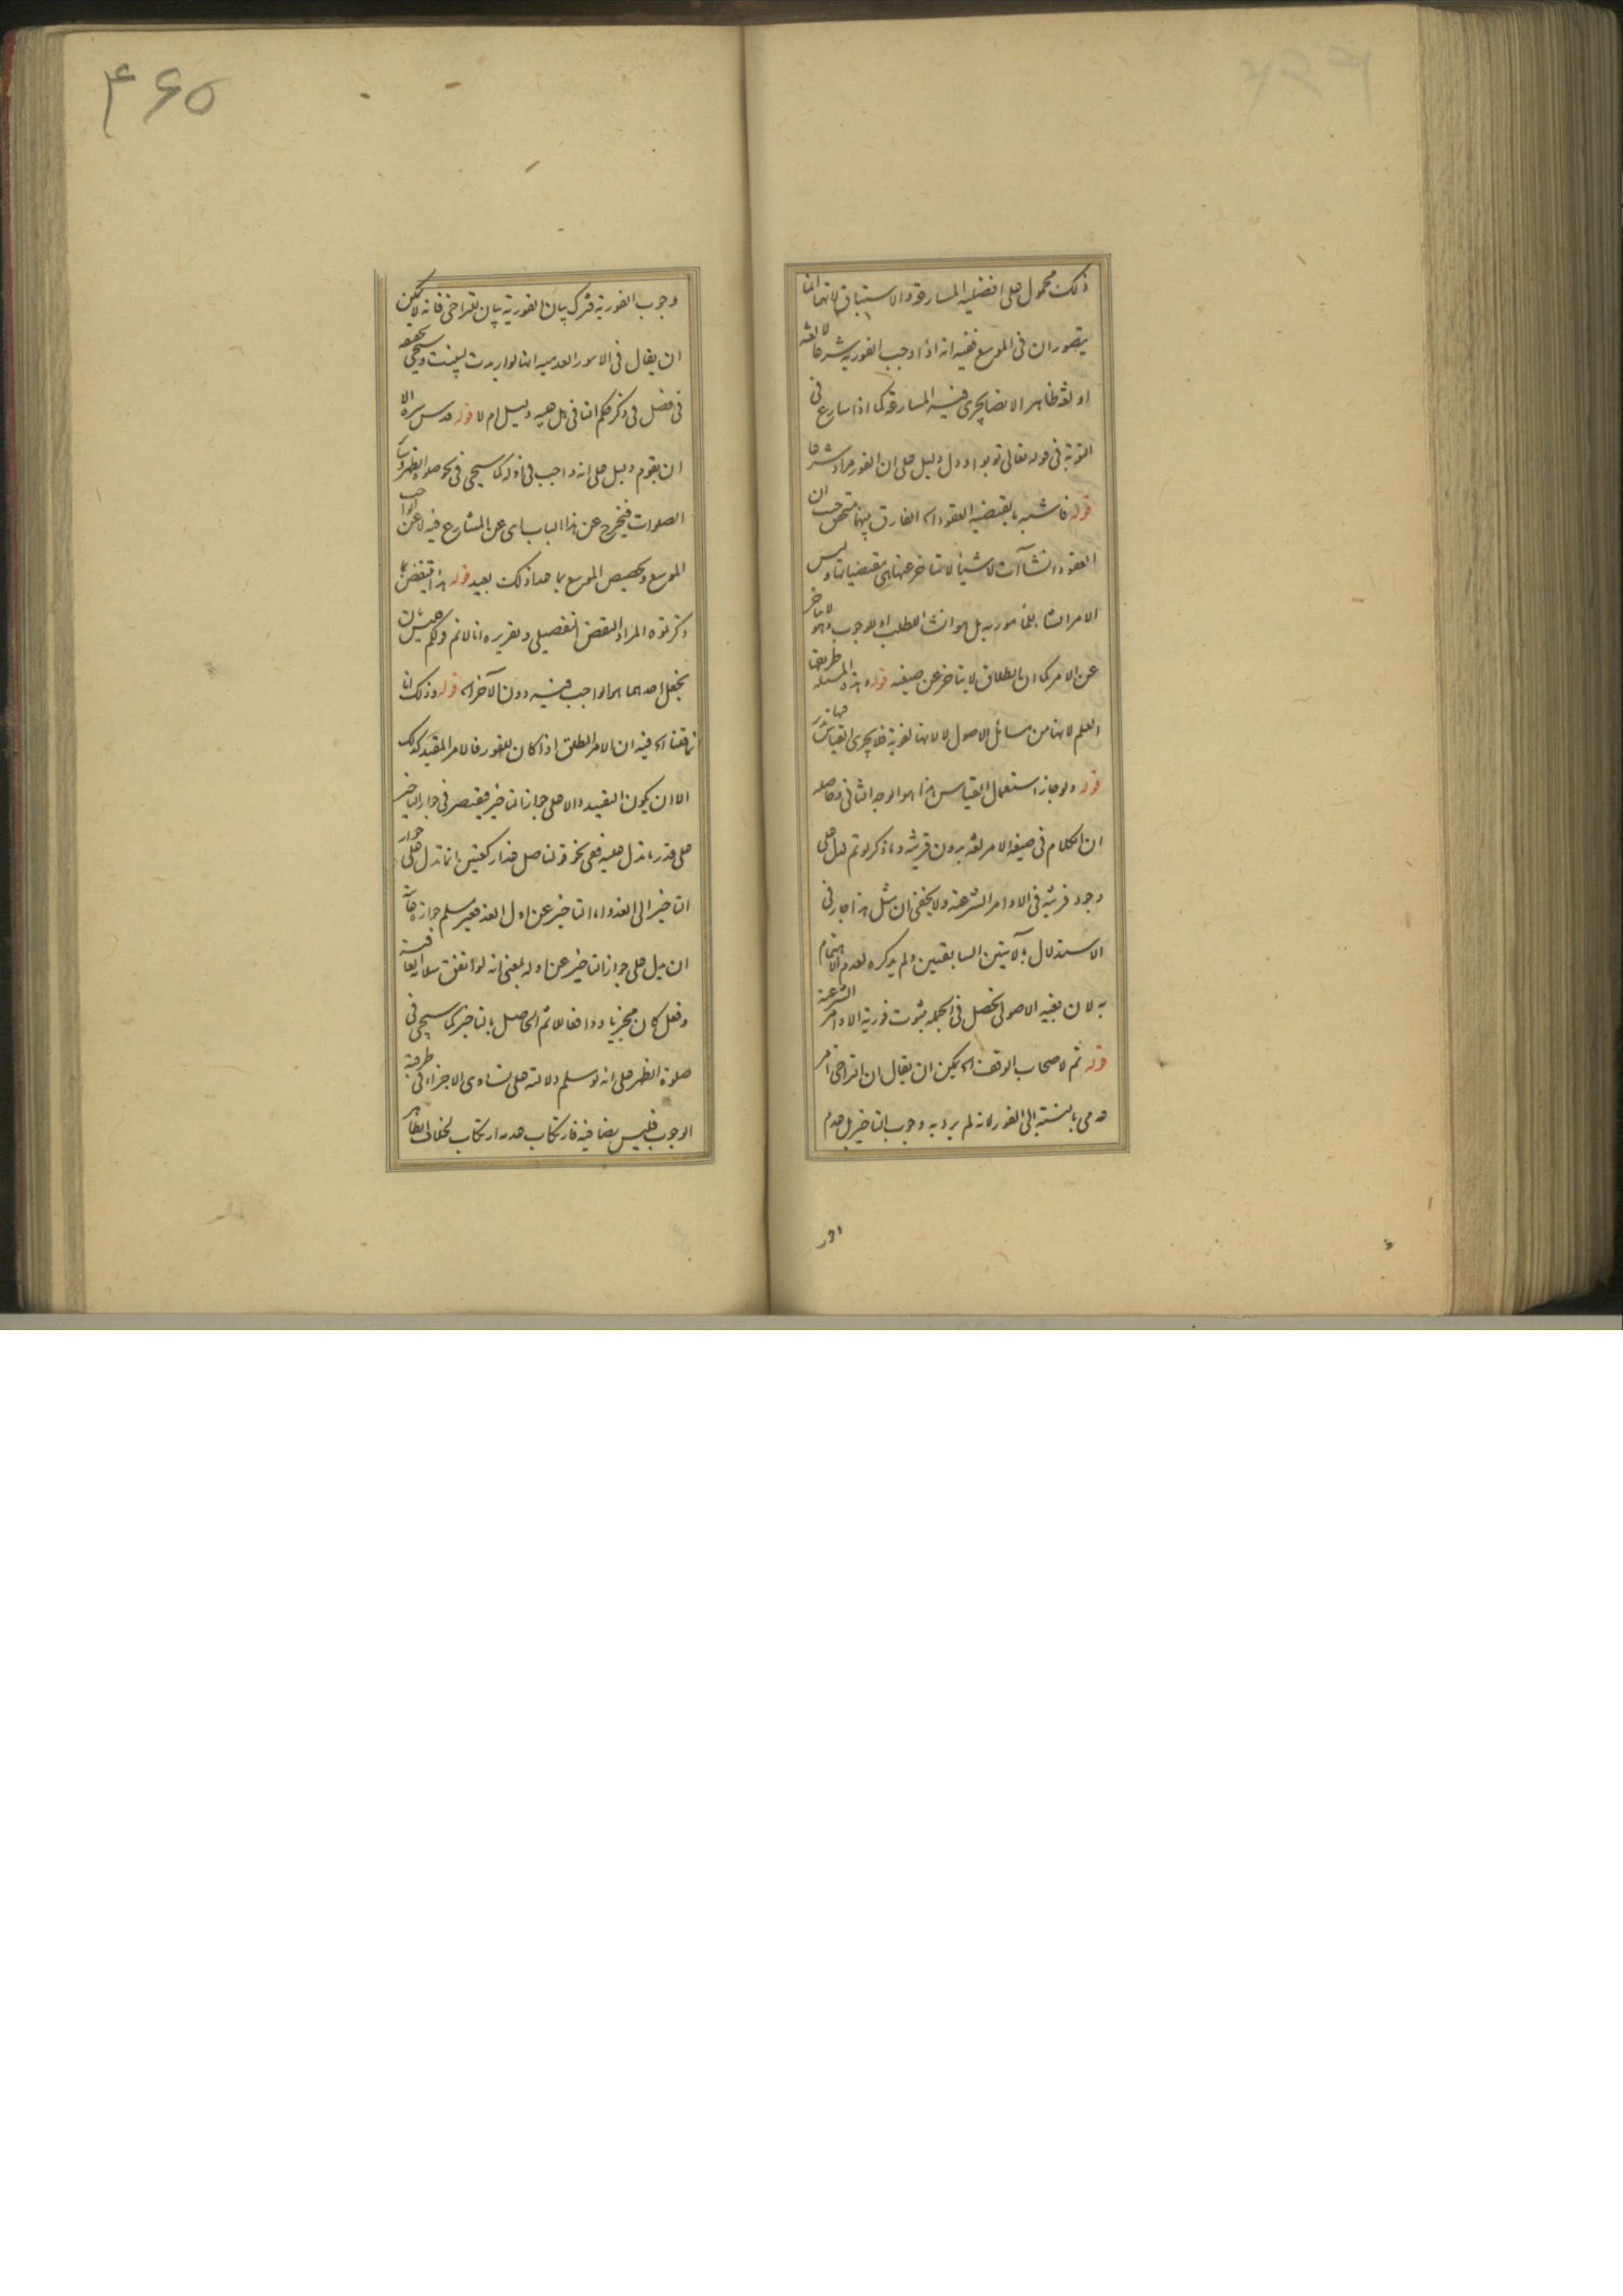 ذلک محمول علی افضلیه المسارعة والاستباق لانهما انما
یتصوران فی الموسع ففیه انه اذا وجب الفوریة شرعا لا لغة
او لغة ظاهرا لا نصا یجری فیه المسارعة کما اذا سارع فی
التوبة فی قوله تعالی توبوا ودل دلیل علی ان الفور مراد شرعا
قوله فاشبه ما یقتضیه العقود اه الفارق بینهما متحقق حیث ان
العقود انشاآت لاشیاء لا تتاخر عنها هی مقتضیاتها ولیس
الامر انشاء للمامور به بل هو انشاء للطلب او للوجوب وهو لا یتاخر
عن الامر کما ان الطلاق لا یتاخر عن صیغته قوله وهذه المسئلة طریقها
العلم لانها من مسائل الاصول لا لانها لغویة فلا یجری القیاس فیها تدبر
قوله ولو جاز استعمال القیاس هذا هو الوجه الثانی وحاصله
ان الکلام فی صیغة الامر لغة بدون قرینة وما ذکر لو تم لدل علی
وجود قرینة فی الاوامر الشرعیة ولا یخفی ان مثل هذا جار فی
الاستدلال بالآیتین السابقتین ولم یذکره لعدم الاهتمام
به لان بغیة الاصولی تحصل فی الجملة بثبوت فوریة الاوامر الشرعیة
قوله ثم لاصحاب الوقف اه یمکن ان یقال ان التراخی امر
عدمی بالنسبة الی الفور لانه لم یرد به وجوب التاخیر بل عدم
وجوب الفوریة فترک بیان الفوریة بیان للتراخی فانه لا یمکن
ان یقال فی الامور العدمیه انها لو اریدت لبینت وسیجی تحقیقه
فی فصل فی ذکر حکم النافی هل علیه دلیل ام لا قوله قدس سره الا
ان یقوم دلیل علی انه واجب فی اوله کما سیجی فی نحو صلوة الظهر
الصلوات فیخرج عن هذا الباب ای عن المشارع فیه لا عن الواجب
الموسع وتخصیص الموسع بما عدا ذلک بعید قوله هذا ینتقض بما
ذکرتموه المراد النقض التفصیلی وتقریره انا لا نم قولکم لیس بان
یجعل احدهما هو الواجب فیه دون الآخر اه قوله وذلک انا
نما قفنا اه فیه ان الامر المطلق اذا کان للفور فالامر المقید کذلک
الا ان یکون التقیید دالا علی جواز التاخیر فیقتصر فی جواز التاخیر
علی قدر ما تدل علیه ففی نحو قولنا صل غدا رکعتین انما تدل علی جواز
التاخیر الی الغد واما التاخیر عن اول الغد فغیر مسلم جوازه
ان یدل علی جواز التاخیر عن اوله بمعنی انه لو اتفق سلامة العاقبة
وفعل کان مجزیا ودافعا للاثم الحاصل بالتاخیر کما سیجی فی
صلوة الظهر علی انه لو سلم دلالته علی تساوی الاجزاء فی طرفیة
الوجوب فلیس نصا فیه فارتکاب عدمه ارتکاب لخلاف الظاهر
وجو
۴۶۵